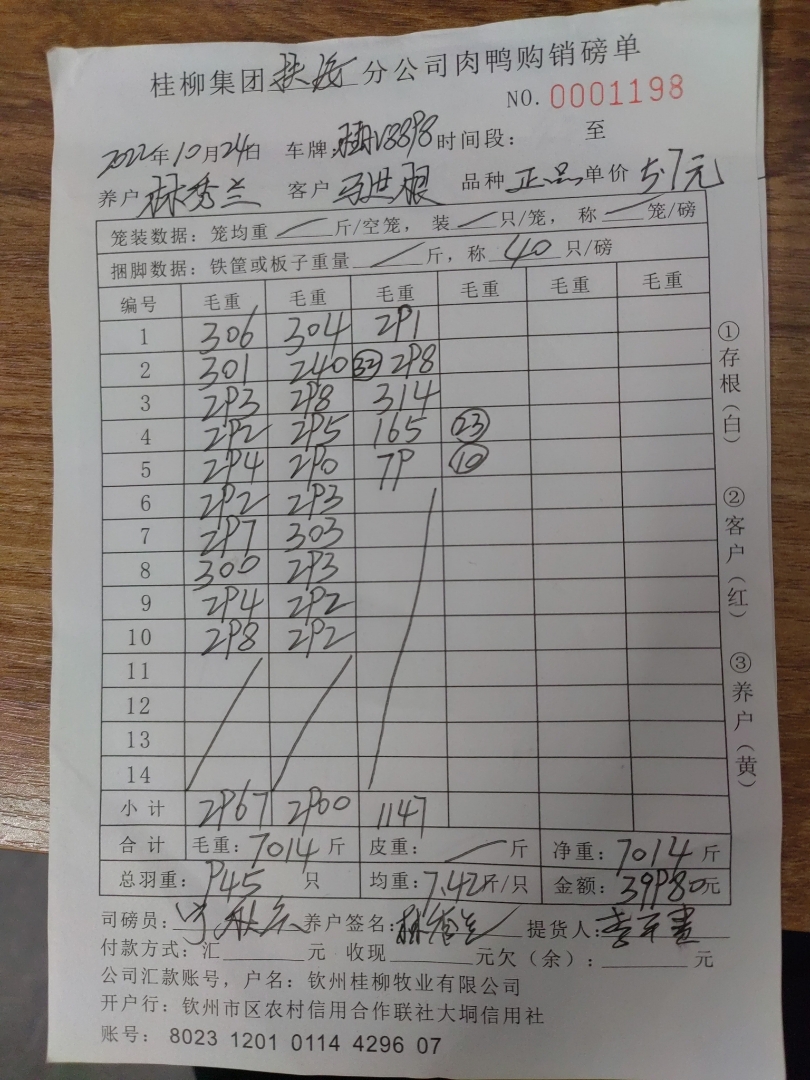 桂柳集团扶隆分公司肉鸭购销磅单
NO. 0001198
2022年10月24日 车牌:桂V8898 时间段: 至
养户 林秀兰 客户 马世根 品种 正品 单价 5.7元
笼装数据:笼均重 / 斤/空笼, 装 / 只/笼, 称 / 笼/磅
捆脚数据:铁筐或板子重量 / 斤,称 40 只/磅
编号 毛重 毛重 毛重 毛重 毛重 毛重
1 306 304 291
2 301 240 ㉜ 298
3 293 298 314
4 292 295 165 ㉓
5 294 290 79 ⑩
6 292 293
7 297 303
8 300 293
9 294 292
10 298 292
11
12
13
14
小计 2967 2900 1147
合计 毛重:7014斤 皮重: / 斤 净重:7014斤
总羽重:945 只 均重:7.42斤/只 金额:39980元
司磅员: 养户签名:林秀兰 提货人:
付款方式:汇 元 收现 元欠(余): 元
公司汇款账号,户名:钦州桂柳牧业有限公司
开户行:钦州市区农村信用合作联社大垌信用社
账号: 8023 1201 0114 4296 07
①存根(白)
②客户(红)
③养户(黄)